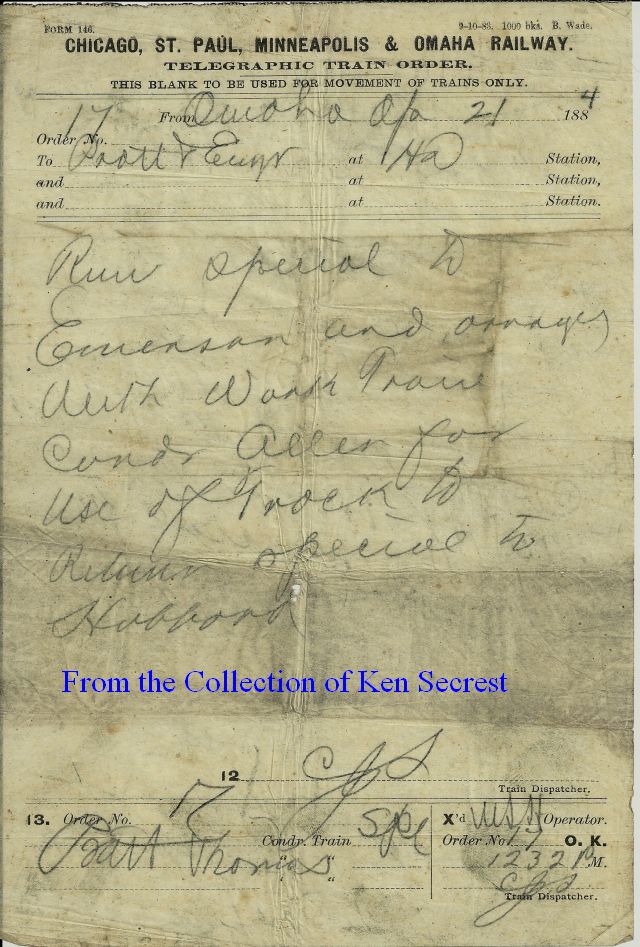 FORM 146. 9-10-83. 1000 bks. B. Wade.
CHICAGO, ST. PAUL, MINNEAPOLIS & OMAHA RAILWAY.
TELEGRAPHIC TRAIN ORDER.
THIS BLANK TO BE USED FOR MOVEMENT OF TRAINS ONLY.
Order No. 17 From Omaha 21 1884
To Pratt & Engr at HD Station,
and at Station,
and at Station.
Run special to
Emerson and arrange
With Work Train
Condr Allen for
Use of Track to
Return special to
Hubbard
From the Collection of Ken Secrest
12 CJS
Train Dispatcher.
13. Order No. 17
Pratt Condr. Train Spl
Thomas " "
X'd Operator.
Order No. 17 O. K.
1232 P M.
CJS
Train Dispatcher.